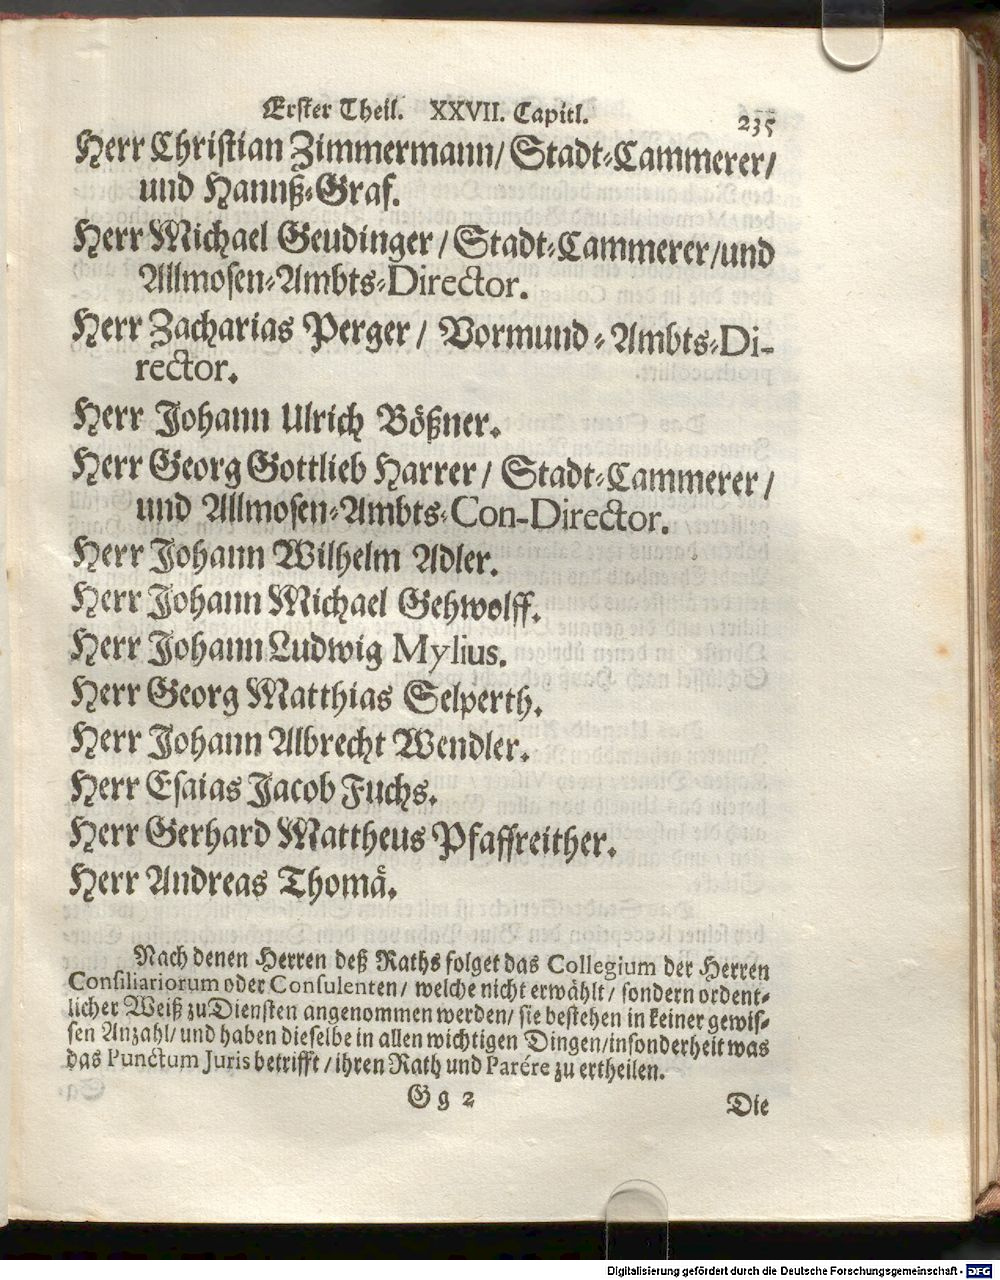 Erster Theil. XXVII. Capitl. 235
Herr Christian Zimmermann/ Stadt-Cammerer/
und Hannß-Graf.
Herr Michael Geudinger/ Stadt-Cammerer/und
Allmosen-Ambts-Director.
Herr Zacharias Perger/ Vormund-Ambts-Di-
rector.
Herr Johann Ulrich Bößner.
Herr Georg Gottlieb Harrer/ Stadt-Cammerer/
und Allmosen-Ambts-Con-Director.
Herr Johann Wilhelm Adler.
Herr Johann Michael Gehwolff.
Herr Johann Ludwig Mylius.
Herr Georg Matthias Selperth.
Herr Johann Albrecht Wendler.
Herr Esaias Jacob Fuchs.
Herr Gerhard Mattheus Pfaffreither.
Herr Andreas Thomä.
Nach denen Herren deß Raths folget das Collegium der Herren
Consiliariorum oder Consulenten/ welche nicht erwählt/ sondern ordent-
licher Weiß zu Diensten angenommen werden/ sie bestehen in keiner gewis-
sen Anzahl/ und haben dieselbe in allen wichtigen Dingen/insonderheit was
das Punctum Juris betrifft/ ihren Rath und Parére zu ertheilen.
Gg 2 Die
Digitalisierung gefördert durch die Deutsche Forschungsgemeinschaft - DFG